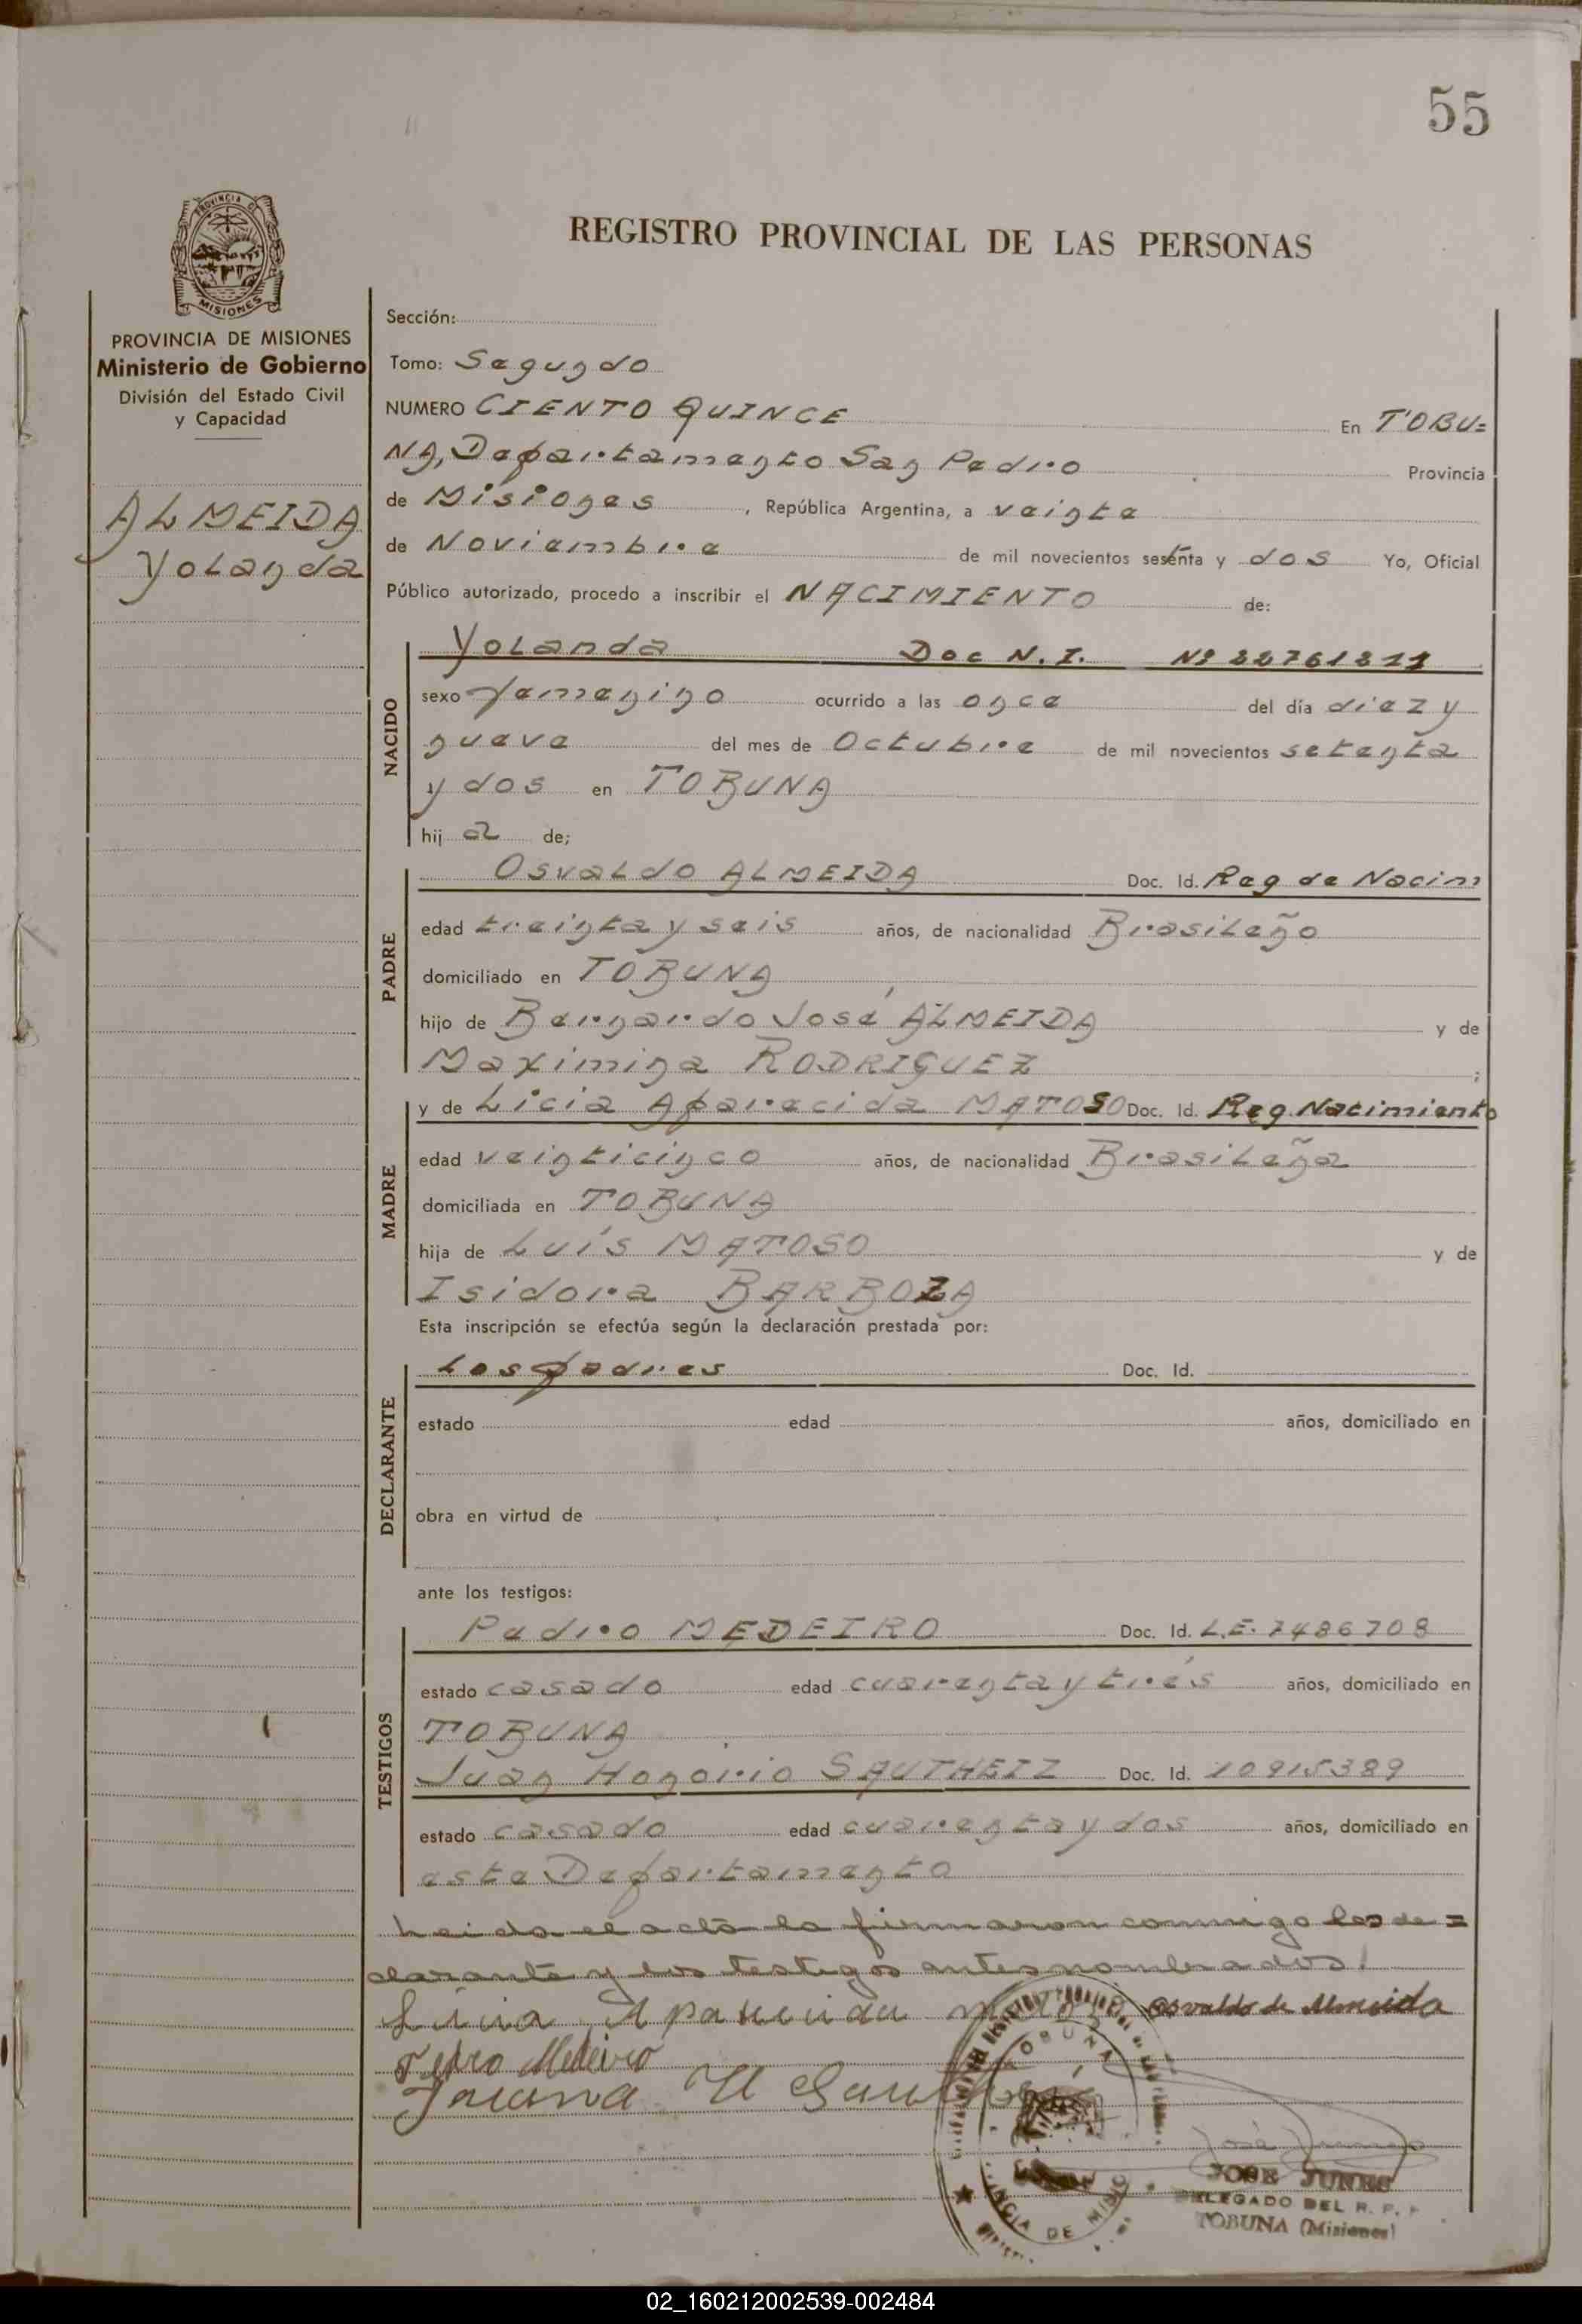 55
PROVINCIA DE
MISIONES
REGISTRO PROVINCIAL DE LAS PERSONAS
PROVINCIA DE MISIONES
Ministerio de Gobierno
División del Estado Civil
y Capacidad
ALMEIDA
Yolanda
Sección:
Tomo: Segundo
NUMERO CIENTO QUINCE En TOBU=
NA, Departamento San Pedro Provincia
de Misiones, República Argentina, a veinte
de Noviembre de mil novecientos setenta y dos Yo, Oficial
Público autorizado, procedo a inscribir el NACIMIENTO de:
NACIDO
Yolanda Doc N.I. Nº 22761211
sexo femenino ocurrido a las once del día diez y
nueve del mes de Octubre de mil novecientos setenta
y dos en TOBUNA
hij a de;
PADRE
Osvaldo ALMEIDA Doc. Id. Reg de Nacim
edad treinta y seis años, de nacionalidad Brasileño
domiciliado en TOBUNA
hijo de Bernardo José ALMEIDA y de
Maximina RODRIGUEZ ;
MADRE
y de Licia Aparecida MATOSO Doc. Id. Reg. Nacimiento
edad veinticinco años, de nacionalidad Brasileña
domiciliada en TOBUNA
hija de Luís MATOSO y de
Isidora BARBOZA
Esta inscripción se efectúa según la declaración prestada por:
DECLARANTE
Los padres Doc. Id.
estado edad años, domiciliado en
obra en virtud de
ante los testigos:
TESTIGOS
Pedro MEDEIRO Doc. Id. L.E. 7486708
estado casado edad cuarenta y trés años, domiciliado en
TOBUNA
Juan Honorio SAUTHEIZ Doc. Id. 10915389
estado casado edad cuarenta y dos años, domiciliado en
este Departamento
Leida el acta la firmaron conmigo los de=
clarante y los testigos antes nombrados!
Osvaldo de Almeida
Pedro Medeiro
TOBUNA
DE
JOSE JUNES
DELEGADO DEL R. P.
TOBUNA (Misiones)
02_160212002539-002484